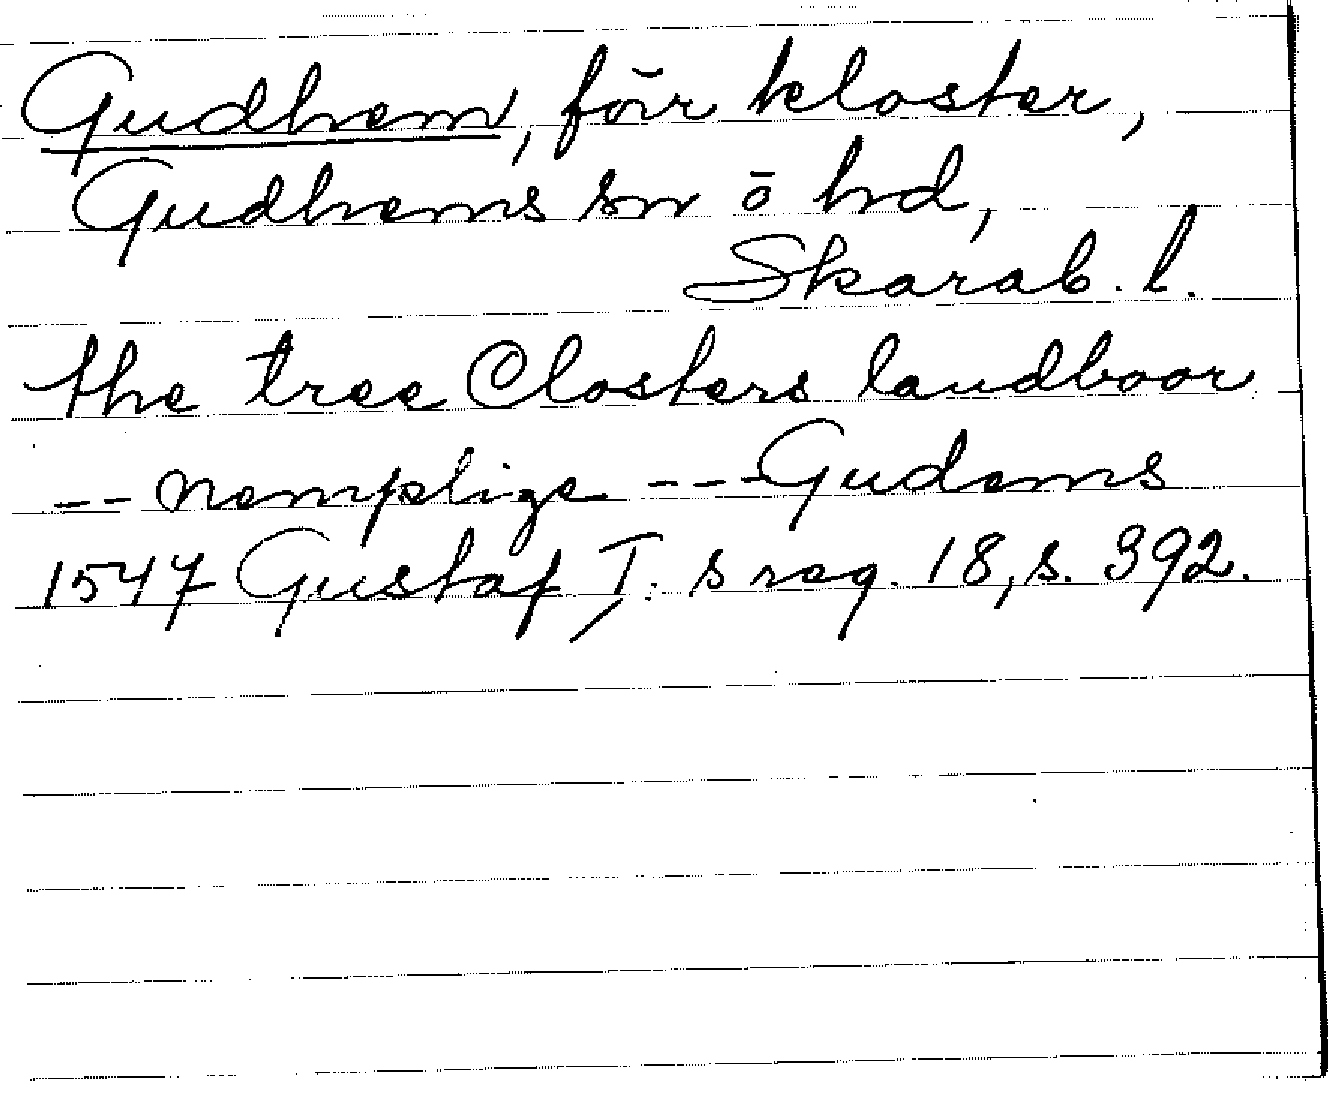 Gudhem, förr kloster,
Gudhems sn o hd,
Skarab. l.
the tree Closters landboor
-- nemplige --- Gudems
1547 Gustaf I:s reg. 18, s. 392.